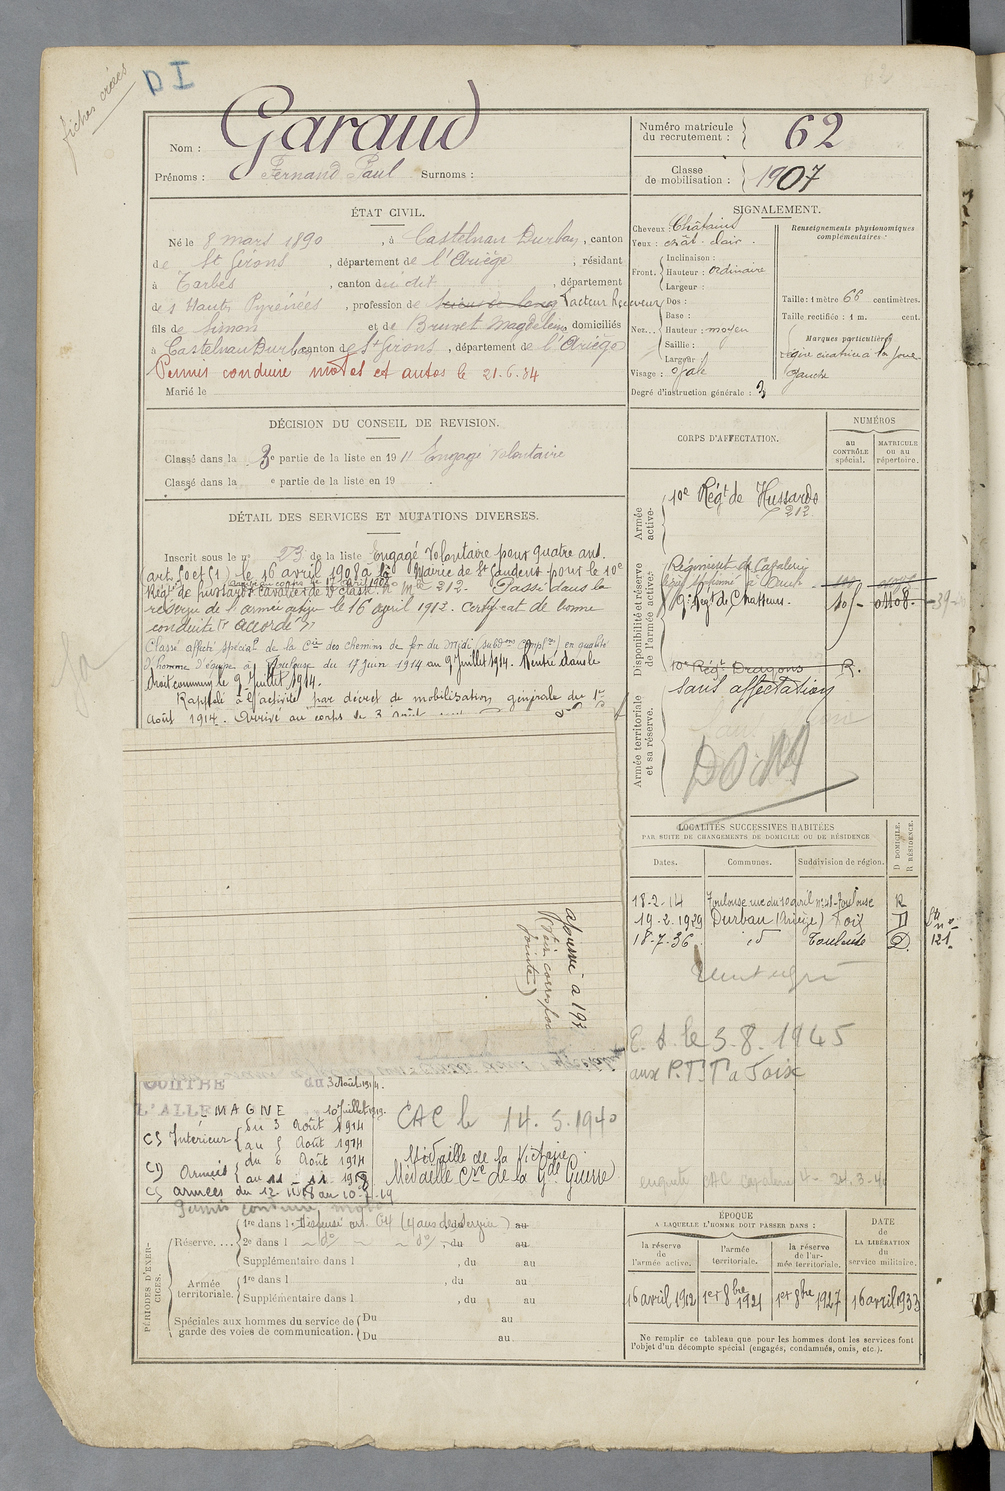 fiches créées
DI
Nom : Garaud
Prénoms : Fernand Paul Surnoms :
Numéro matricule du recrutement : 62
Classe de mobilisation : 1907
ÉTAT CIVIL.
Né le 8 mars 1890, à Castelnau Durban, canton
de St Girons, département de l'Ariège, résidant
à Tarbes, canton du dit, département
de s Hautes Pyrénées, profession de Facteur Receveur
fils de Simon et de Brunet Magdeleine domiciliés
à Castelnau Durban canton de St Girons, département de l'Ariège
Permis conduire motos et autos le 21.6.34
Marié le
SIGNALEMENT.
Cheveux : Châtains
Yeux : chât. clair.
Front. Inclinaison :
Hauteur : ordinaire
Largeur :
Nez... Dos :
Base :
Hauteur : moyen
Saillie :
Largeur :
Visage : ovale
Renseignements physionomiques complémentaires :
Taille : 1 mètre 66 centimètres.
Taille rectifiée : 1 m. cent.
Marques particulières
légère cicatrice à la joue
gauche
Degré d'instruction générale : 3
DÉCISION DU CONSEIL DE REVISION.
Classé dans la 3e partie de la liste en 1911 Engagé Volontaire
Classé dans la e partie de la liste en 19 .
DÉTAIL DES SERVICES ET MUTATIONS DIVERSES.
Inscrit sous le no 23 de la liste Engagé Volontaire pour quatre ans.
(art. 50 et 51) le 16 avril 1908 à la Mairie de St Gaudens pour le 10e
arrivé au corps le 17 avril 1908
Régt de hussards cavalier de 2e classe. n° Mle 212. Passé dans la
réserve de l'armée active le 16 avril 1912. Certificat de bonne
conduite "accordé"
Classé affecté spécial de la Cie des chemins de fer du Midi (subdons compl.res) en qualité
d'homme d'équipe à Toulouse du 17 juin 1914 au 9 Juillet 1914. Rentré dans le
droit commun le 9 Juillet 1914.
Rappelé à l'activité par décret de mobilisation générale du 1er
Août 1914. Arrivé au corps le 3 août
ajourné a 193
(Voir correspo
jointe)
CONTRE du 3 Août 1914.
L'ALLEMAGNE 10 Juillet 1919.
CS Intérieur du 3 Août 1914
au 5 Août 1914
CD Armées du 6 Août 1914
au 11 - 11 1918
CS armées du 12 11 18 au 10-7-19
CAC le 14.5.1940
Médaille de la Victoire
Médaille Cve de la Gde Guerre
Permis conduire moto
PÉRIODES D'EXERCICES.
Réserve. .... 1re dans l Dispensé art. 64 (4 ans de service) au
2e dans l - do - - do - , du au
Supplémentaire dans l , du au
Armée territoriale. 1re dans l , du au
Supplémentaire dans l , du au
Spéciales aux hommes du service de garde des voies de communication. Du au
Du au
CORPS D'AFFECTATION.
NUMÉROS
au CONTRÔLE spécial.
MATRICULE ou au répertoire.
Armée active.
10e Régt de Hussards
212
Disponibilité et réserve de l'armée active.
Régiment de Cavalerie
9e Régt de Chasseurs.
10e Régt Dragons R.
sans affectation
Armée territoriale et sa réserve.
LOCALITÉS SUCCESSIVES HABITÉES
PAR SUITE DE CHANGEMENTS DE DOMICILE OU DE RÉSIDENCE
Dates. Communes. Subdivision de région. D DOMICILE. R RÉSIDENCE.
18-2-14 Toulouse rue du 10 avril n° 21 - Toulouse R
19-2-1929 Durban (Ariège) Foix D
18-7-36 id Toulouse D
121
E.S. le 3.8.1945
aux P.T.T a Foix
enquête CAC Cavalerie 4- 24.3-40
ÉPOQUE
A LAQUELLE L'HOMME DOIT PASSER DANS :
la réserve de l'armée active. l'armée territoriale. la réserve de l'armée territoriale.
DATE de LA LIBÉRATION du service militaire.
16 avril 1912 1er 8bre 1921 1er 8bre 1927 16 avril 1933
Ne remplir ce tableau que pour les hommes dont les services font
l'objet d'un décompte spécial (engagés, condamnés, omis, etc.).